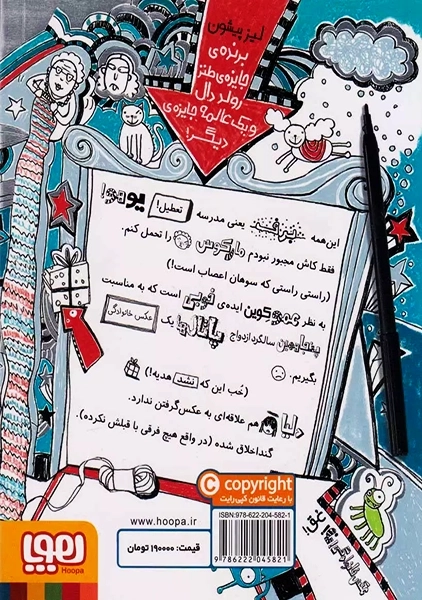 لیز پیشون
برنده‌ی
جایزه‌ی طنز
رولد دال
و یک عالمه جایزه‌ی
دیگر!
این همه برف یعنی مدرسه تعطیل! یوهو!
فقط کاش مجبور نبودم مارکوس را تحمل کنم.
(راستی راستی که سوهان اعصاب است!)
به نظر عمو کوین ایده‌ی خوبی است که به مناسبت
پنجاهمین سالگرد ازدواج پاتال‌ها یک عکس خانوادگی
بگیریم.
(خُب این که نشد هدیه!)
دلیا هم علاقه‌ای به عکس گرفتن ندارد.
گنداخلاق شده (در واقع هیچ فرقی با قبلش نکرده).
copyright
با رعایت قانون کپی‌رایت
ISBN: 978-622-204-582-1
9 786222 045821
www.hoopa.ir
قیمت: ۱۹۰۰۰۰ تومان
هوپا
Hoopa